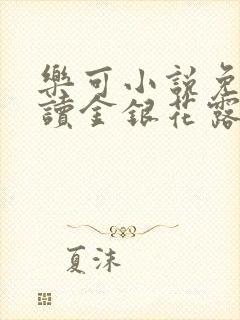 樂可小說免
讀金銀花露
夏沫